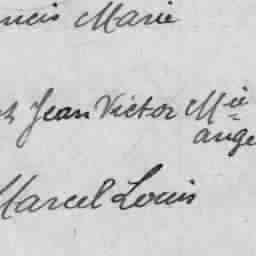 ncis Marie
Jean Victor Mie
ange
Marcel Louis